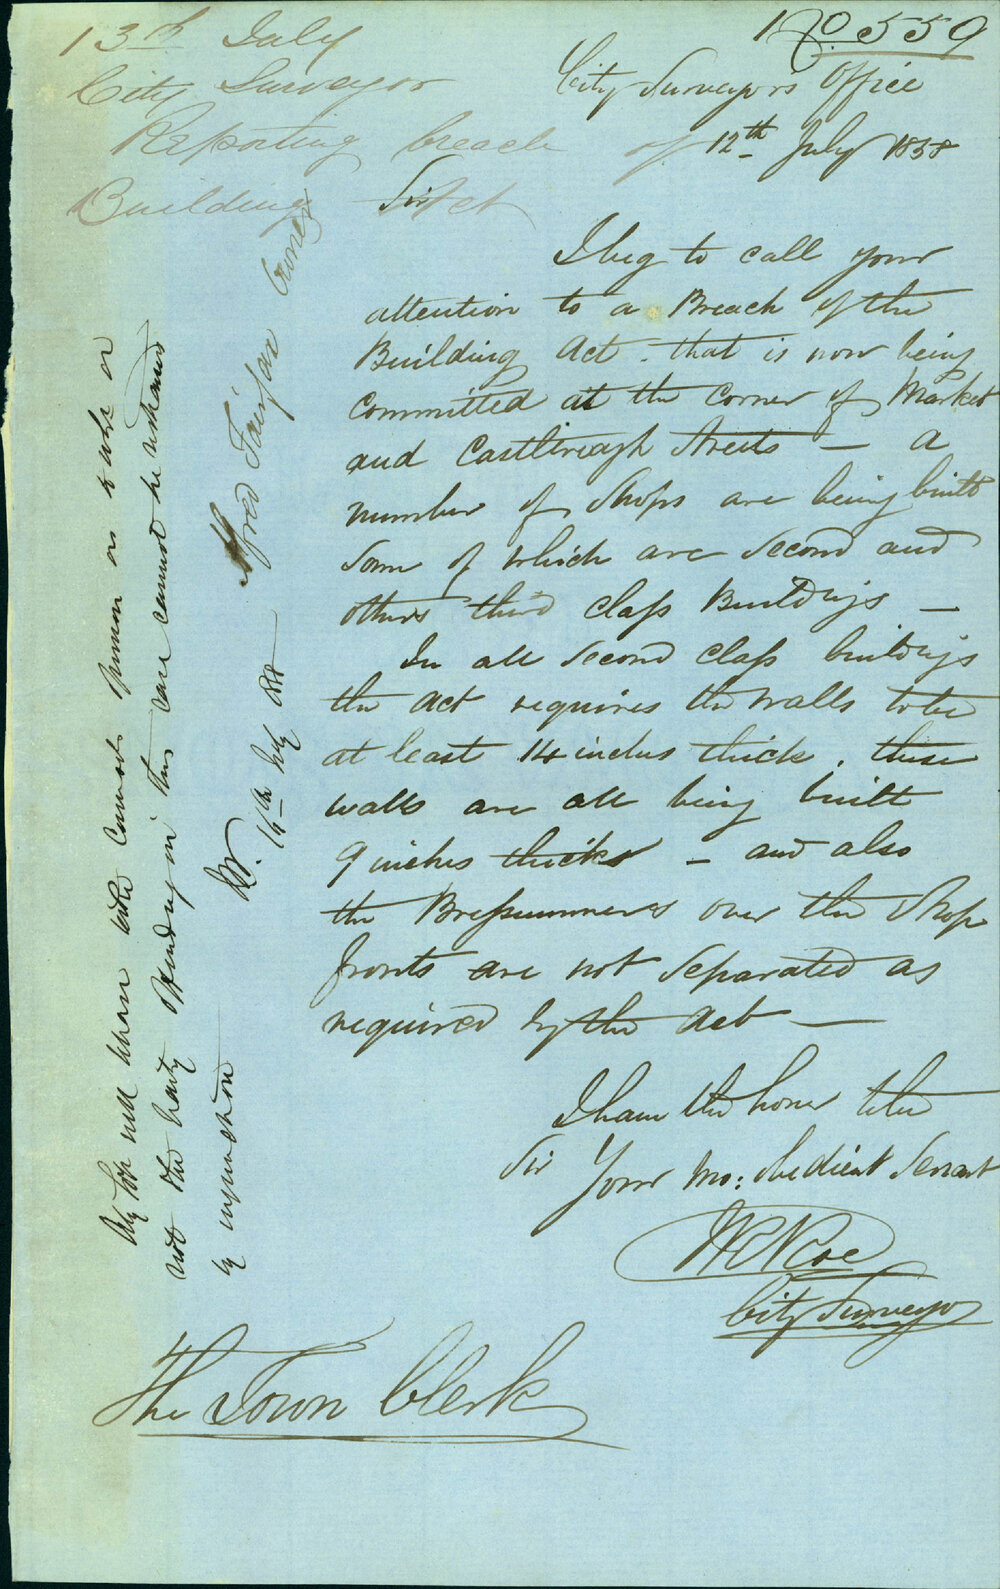 No. 559
13th July
City Surveyor
Reporting breach of
Building Act
City Surveyor's Office
12th July 1858
Sir
I beg to call your
attention to a Breach of the
Building Act that is now being
committed at the corner of Market
and Castlereagh Streets — a
number of Shops are being built
some of which are Second and
others third class Buildings —
In all Second class buildings
the Act requires the walls to be
at least 14 inches thick, these
walls are all being built
9 inches thick — and also
the Bressummers over the Shop
fronts are not separated as
required by the Act —
I have the honor to be
Sir Your Mo: obedient Servant
City Surveyor
The Town Clerk
Alfred Fairfax Owner
not the party offending in this case cannot be
by
16th July